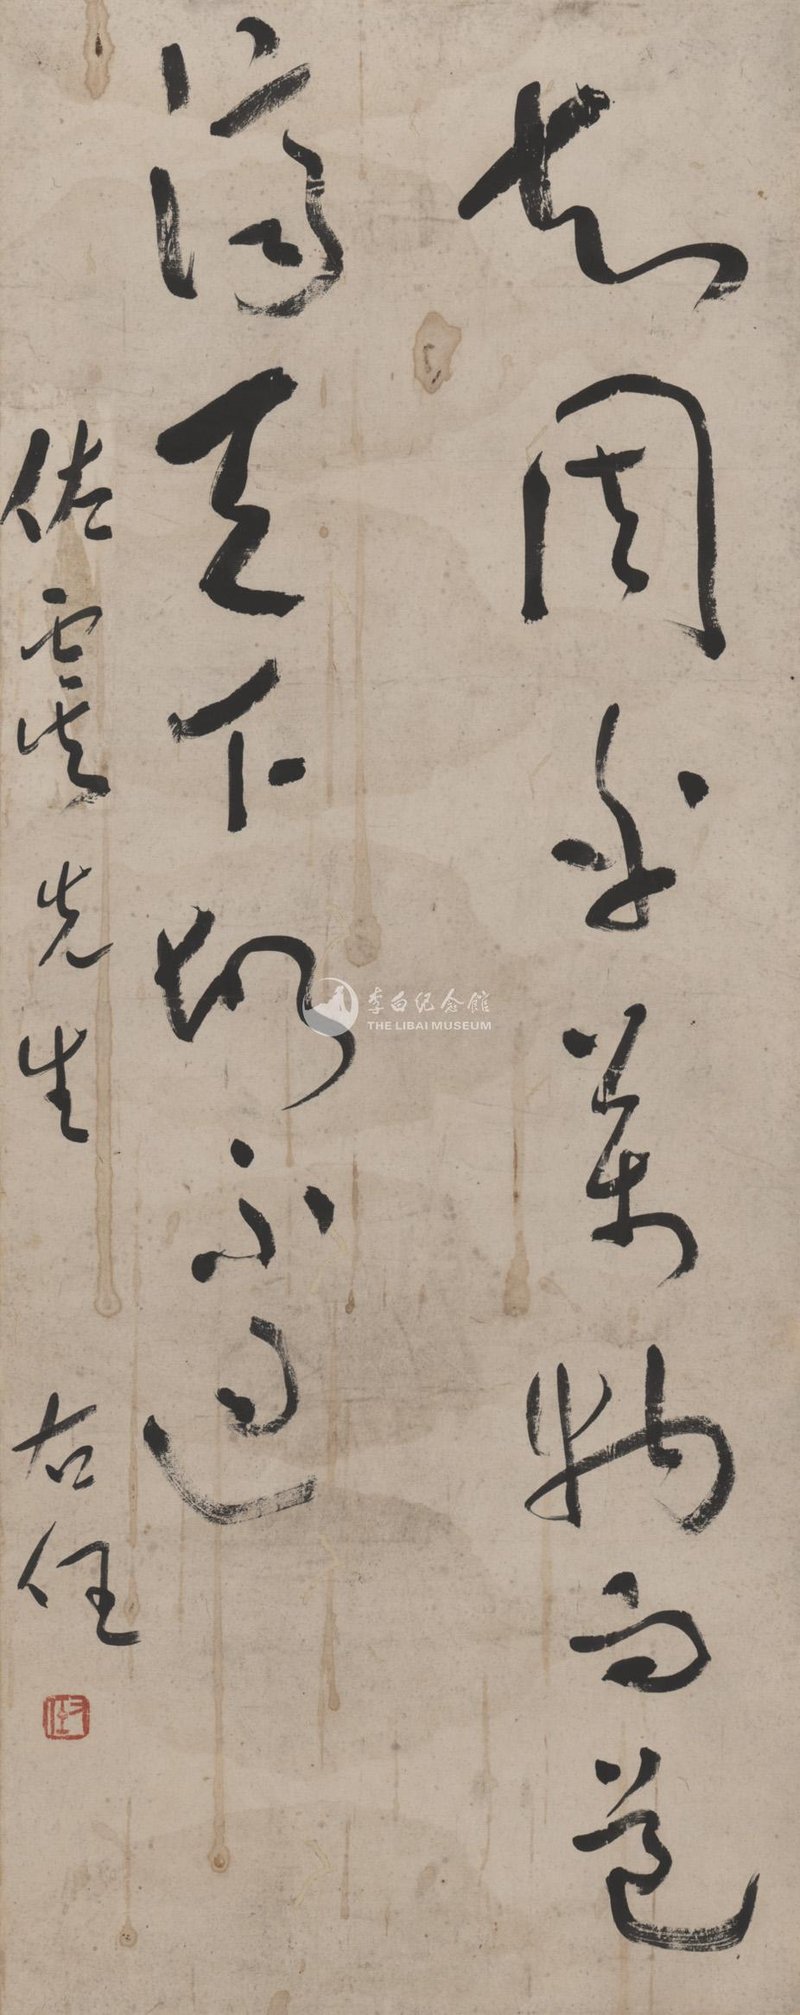 知周乎萬物而道
濟天下故不過
佐雲先生
右任
右任
李白纪念館
THE LIBAI MUSEUM